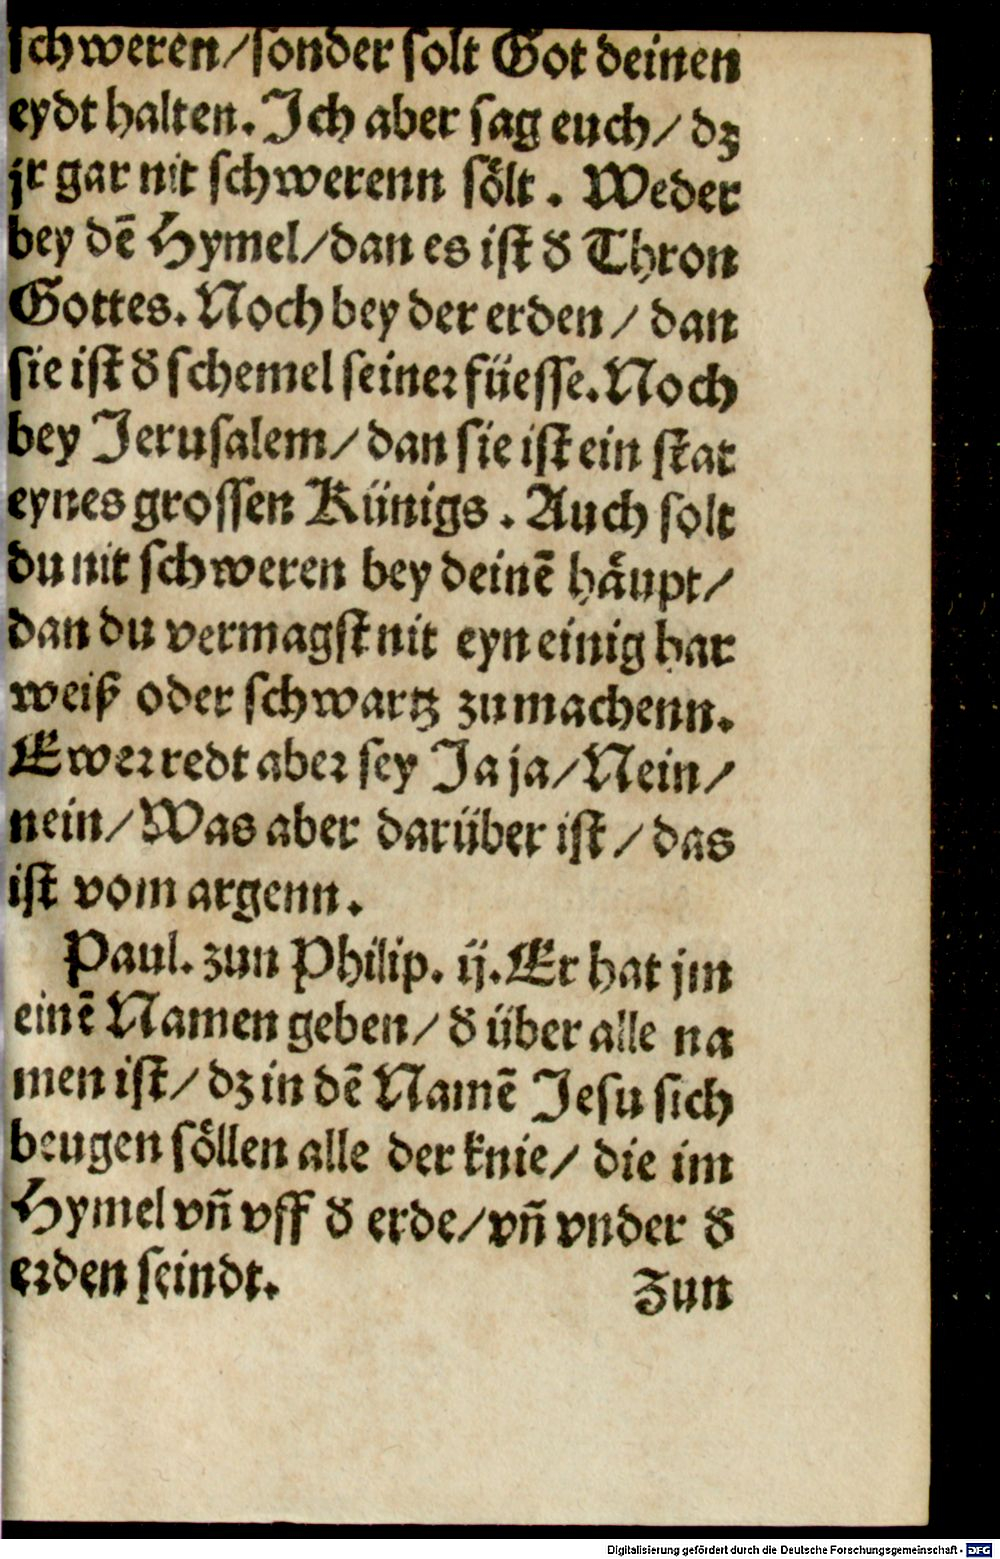 schweren/sonder solt Got deinen
eydt halten. Ich aber sag euch/ dz
jr gar nit schwerenn sölt. Weder
bey dē Hymel/dan es ist d̕ Thron
Gottes. Noch bey der erden/ dan
sie ist d̕ schemel seiner füesse. Noch
bey Jerusalem/ dan sie ist ein stat
eynes grossen Künigs. Auch solt
du nit schweren bey deinē häupt/
dan du vermagst nit eyn einig har
weiß oder schwartz zu machenn.
Ewer redt aber sey Ja ja/Nein/
nein/Was aber darüber ist/ das
ist vom argenn.
Paul. zun Philip. ij. Er hat jm
einē Namen geben/ d̕ über alle na
men ist/ dz in dē Namē Jesu sich
beugen söllen alle der knie/ die im
Hymel vñ vff d̕ erde/vñ vnder d̕
erden seindt.
Zun
Digitalisierung gefördert durch die Deutsche Forschungsgemeinschaft - DFG